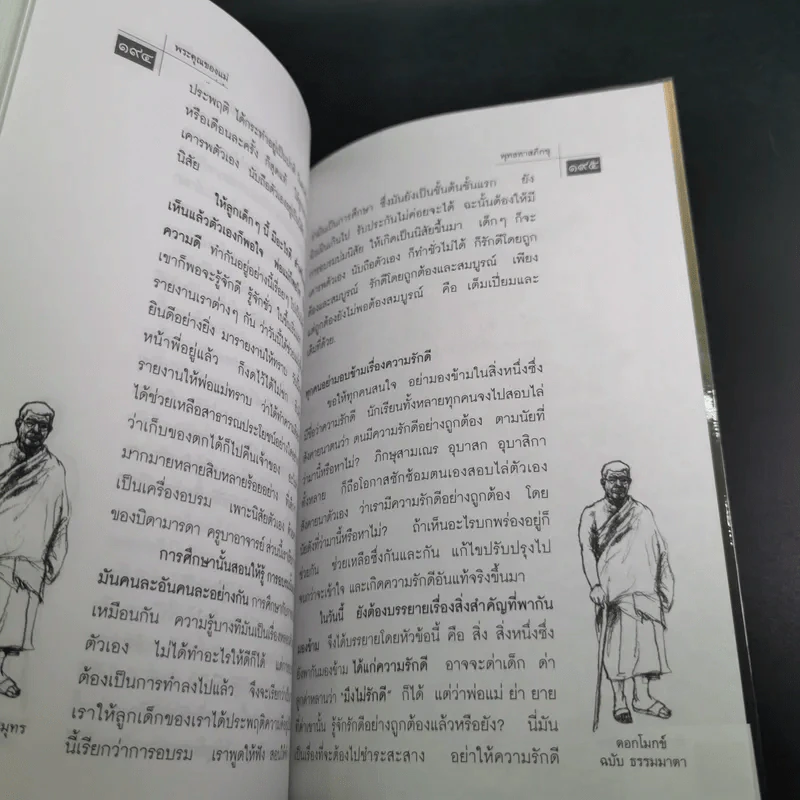 ๑๙๔
พระคุณของแม่
ประพฤติ ได้กระทำอยู่เป็น
หรือเดือนละครั้ง ก็สุดแท้
เคารพตัวเอง นับถือตัวเอง
นิสัย
ให้ลูกเด็กๆ นี้ มีอะไรที่
เห็นแล้วตัวเองก็พอใจ พ่อแม่
ความดี ทำกันอยู่อย่างนี้เรื่อยๆ
เขาก็พอจะรู้จักดี รู้จักชั่ว
รายงานเราต่างๆ กัน ว่าวันนี้ได้
ยินดีอย่างยิ่ง มารายงานให้ทราบ
หน้าพี่อยู่แล้ว ก็งดไว้ได้ไม่ชก
รายงานให้พ่อแม่ทราบ ว่าได้ทำ
ได้ช่วยเหลือสาธารณประโยชน์อย่าง
ว่าเก็บของตกได้ก็ไปคืนเจ้าของ
มากมายหลายสิบหลายร้อยอย่าง ที่
เป็นเครื่องอบรม เพาะนิสัยตัวเอง
ของบิดามารดา ครูบาอาจารย์ ส่วนนี้
การศึกษานั้นสอนให้รู้ การอบรม
มันคนละอันคนละอย่างกัน การศึกษา
เหมือนกัน ความรู้บางทีมันเป็นเรื่อง
ตัวเอง ไม่ได้ทำอะไรให้ดีก็ได้ แต่
ต้องเป็นการทำลงไปแล้ว จึงจะเรียกว่า
เราให้ลูกเด็กของเราได้ประพฤติความดี
นี้เรียกว่าการอบรม เราพูดให้ฟัง สอนให้
มุทร
พุทธทาสภิกขุ
๑๙๕
มันเป็นการศึกษา ซึ่งมันยังเป็นขั้นต้นขั้นแรก ยัง
เกินไป รับประกันไม่ค่อยจะได้ ฉะนั้นต้องให้มี
การอบรมบ่มนิสัย ให้เกิดเป็นนิสัยขึ้นมา เด็กๆ ก็จะ
เคารพตัวเอง นับถือตัวเอง ก็ทำชั่วไม่ได้ ก็รักดีโดยถูก
ต้องและสมบูรณ์ รักดีโดยถูกต้องและสมบูรณ์ เพียง
แต่ถูกต้องยังไม่พอต้องสมบูรณ์ คือ เต็มเปี่ยมและ
เต็มที่ด้วย.
ทุกคนอย่ามองข้ามเรื่องความรักดี
ขอให้ทุกคนสนใจ อย่ามองข้ามในสิ่งหนึ่งซึ่ง
มีชื่อว่าความรักดี นักเรียนทั้งหลายทุกคนจงไปสอบไล่
สังคายนาตนว่า ตนมีความรักดีอย่างถูกต้อง ตามนัยที่
ว่ามานี้หรือหาไม่? ภิกษุสามเณร อุบาสก อุบาสิกา
ทั้งหลาย ก็ถือโอกาสซักซ้อมตนเองสอบไล่ตัวเอง
สังคายนาตัวเอง ว่าเรามีความรักดีอย่างถูกต้อง โดย
นัยดังที่ว่ามานี้หรือหาไม่? ถ้าเห็นอะไรบกพร่องอยู่ก็
ช่วยกัน ช่วยเหลือซึ่งกันและกัน แก้ไขปรับปรุงไป
จนกว่าจะเข้าใจ และเกิดความรักดีอันแท้จริงขึ้นมา
ในวันนี้ ยังต้องบรรยายเรื่องสิ่งสำคัญที่พากัน
มองข้าม จึงได้บรรยายโดยหัวข้อนี้ คือ สิ่ง สิ่งหนึ่งซึ่ง
ยังพากันมองข้าม ได้แก่ความรักดี อาจจะด่าเด็ก ด่า
ลูกด่าหลานว่า "มึงไม่รักดี" ก็ได้ แต่ว่าพ่อแม่ ย่า ยาย
นั้น รู้จักรักดีอย่างถูกต้องแล้วหรือยัง? นี่มัน
เป็นเรื่องที่จะต้องไปชำระสะสาง อย่าให้ความรักดี
ดอกโมกข์
ฉบับ ธรรมมาตา